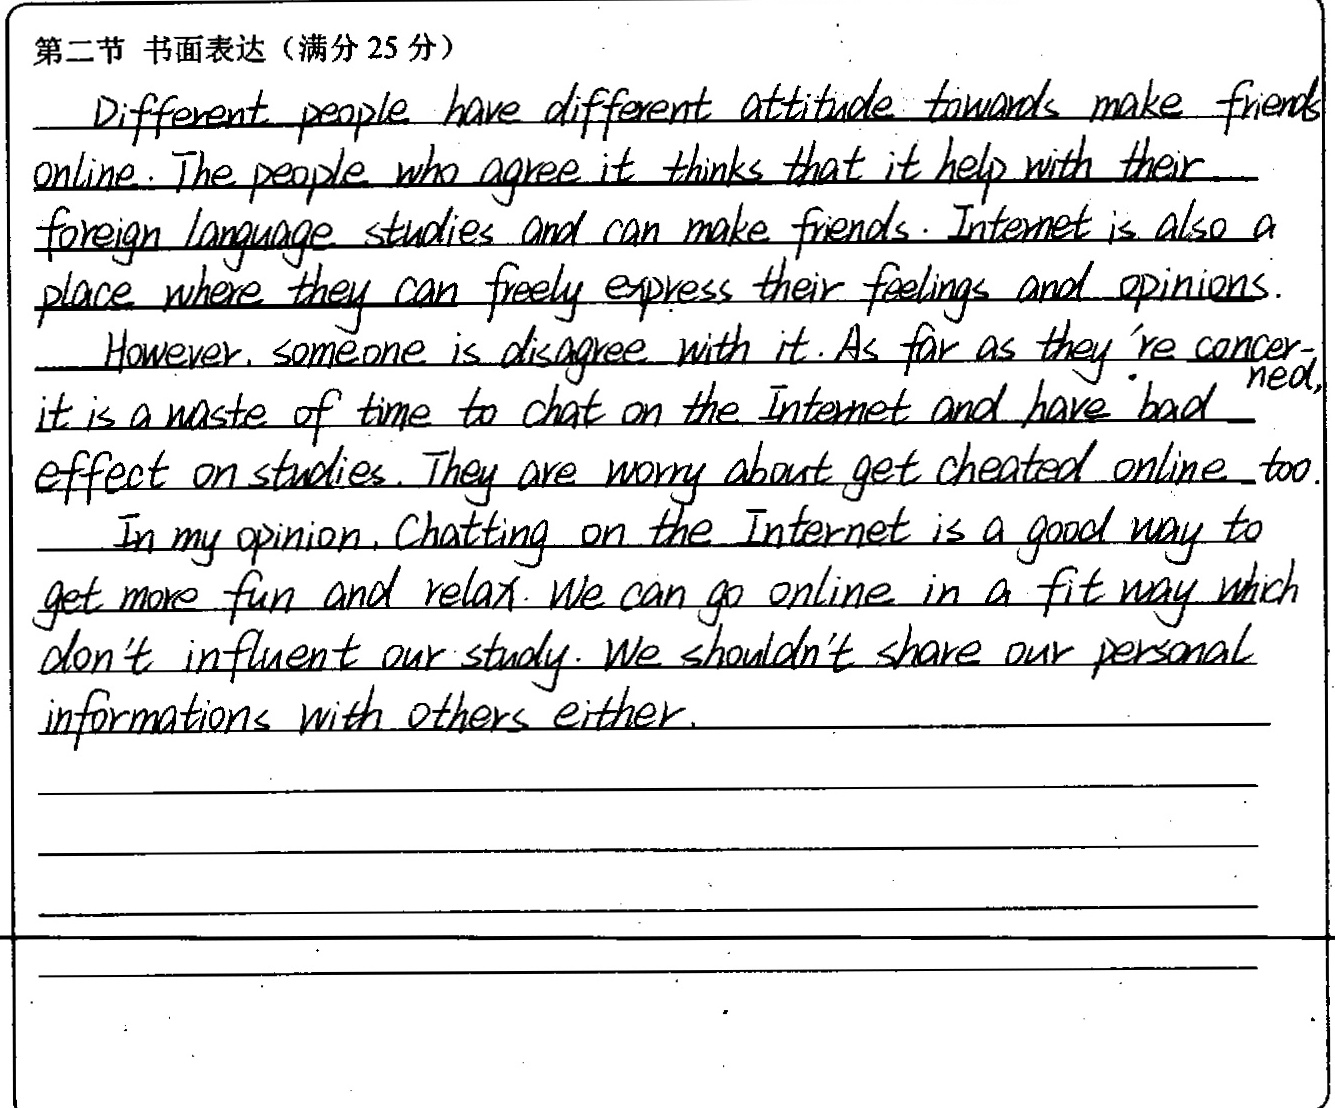 第二节 书面表达（满分 25 分）
Different people have different attitude towards make friends
online. The people who agree it thinks that it help with their
foreign language studies and can make friends. Internet is also a
place where they can freely express their feelings and opinions.
However, someone is disagree with it. As far as they're concer-
ned,
it is a waste of time to chat on the Internet and have bad
effect on studies. They are worry about get cheated online too.
In my opinion, Chatting on the Internet is a good way to
get more fun and relax. We can go online in a fit way which
don't influent our study. We shouldn't share our personal
informations with others either.